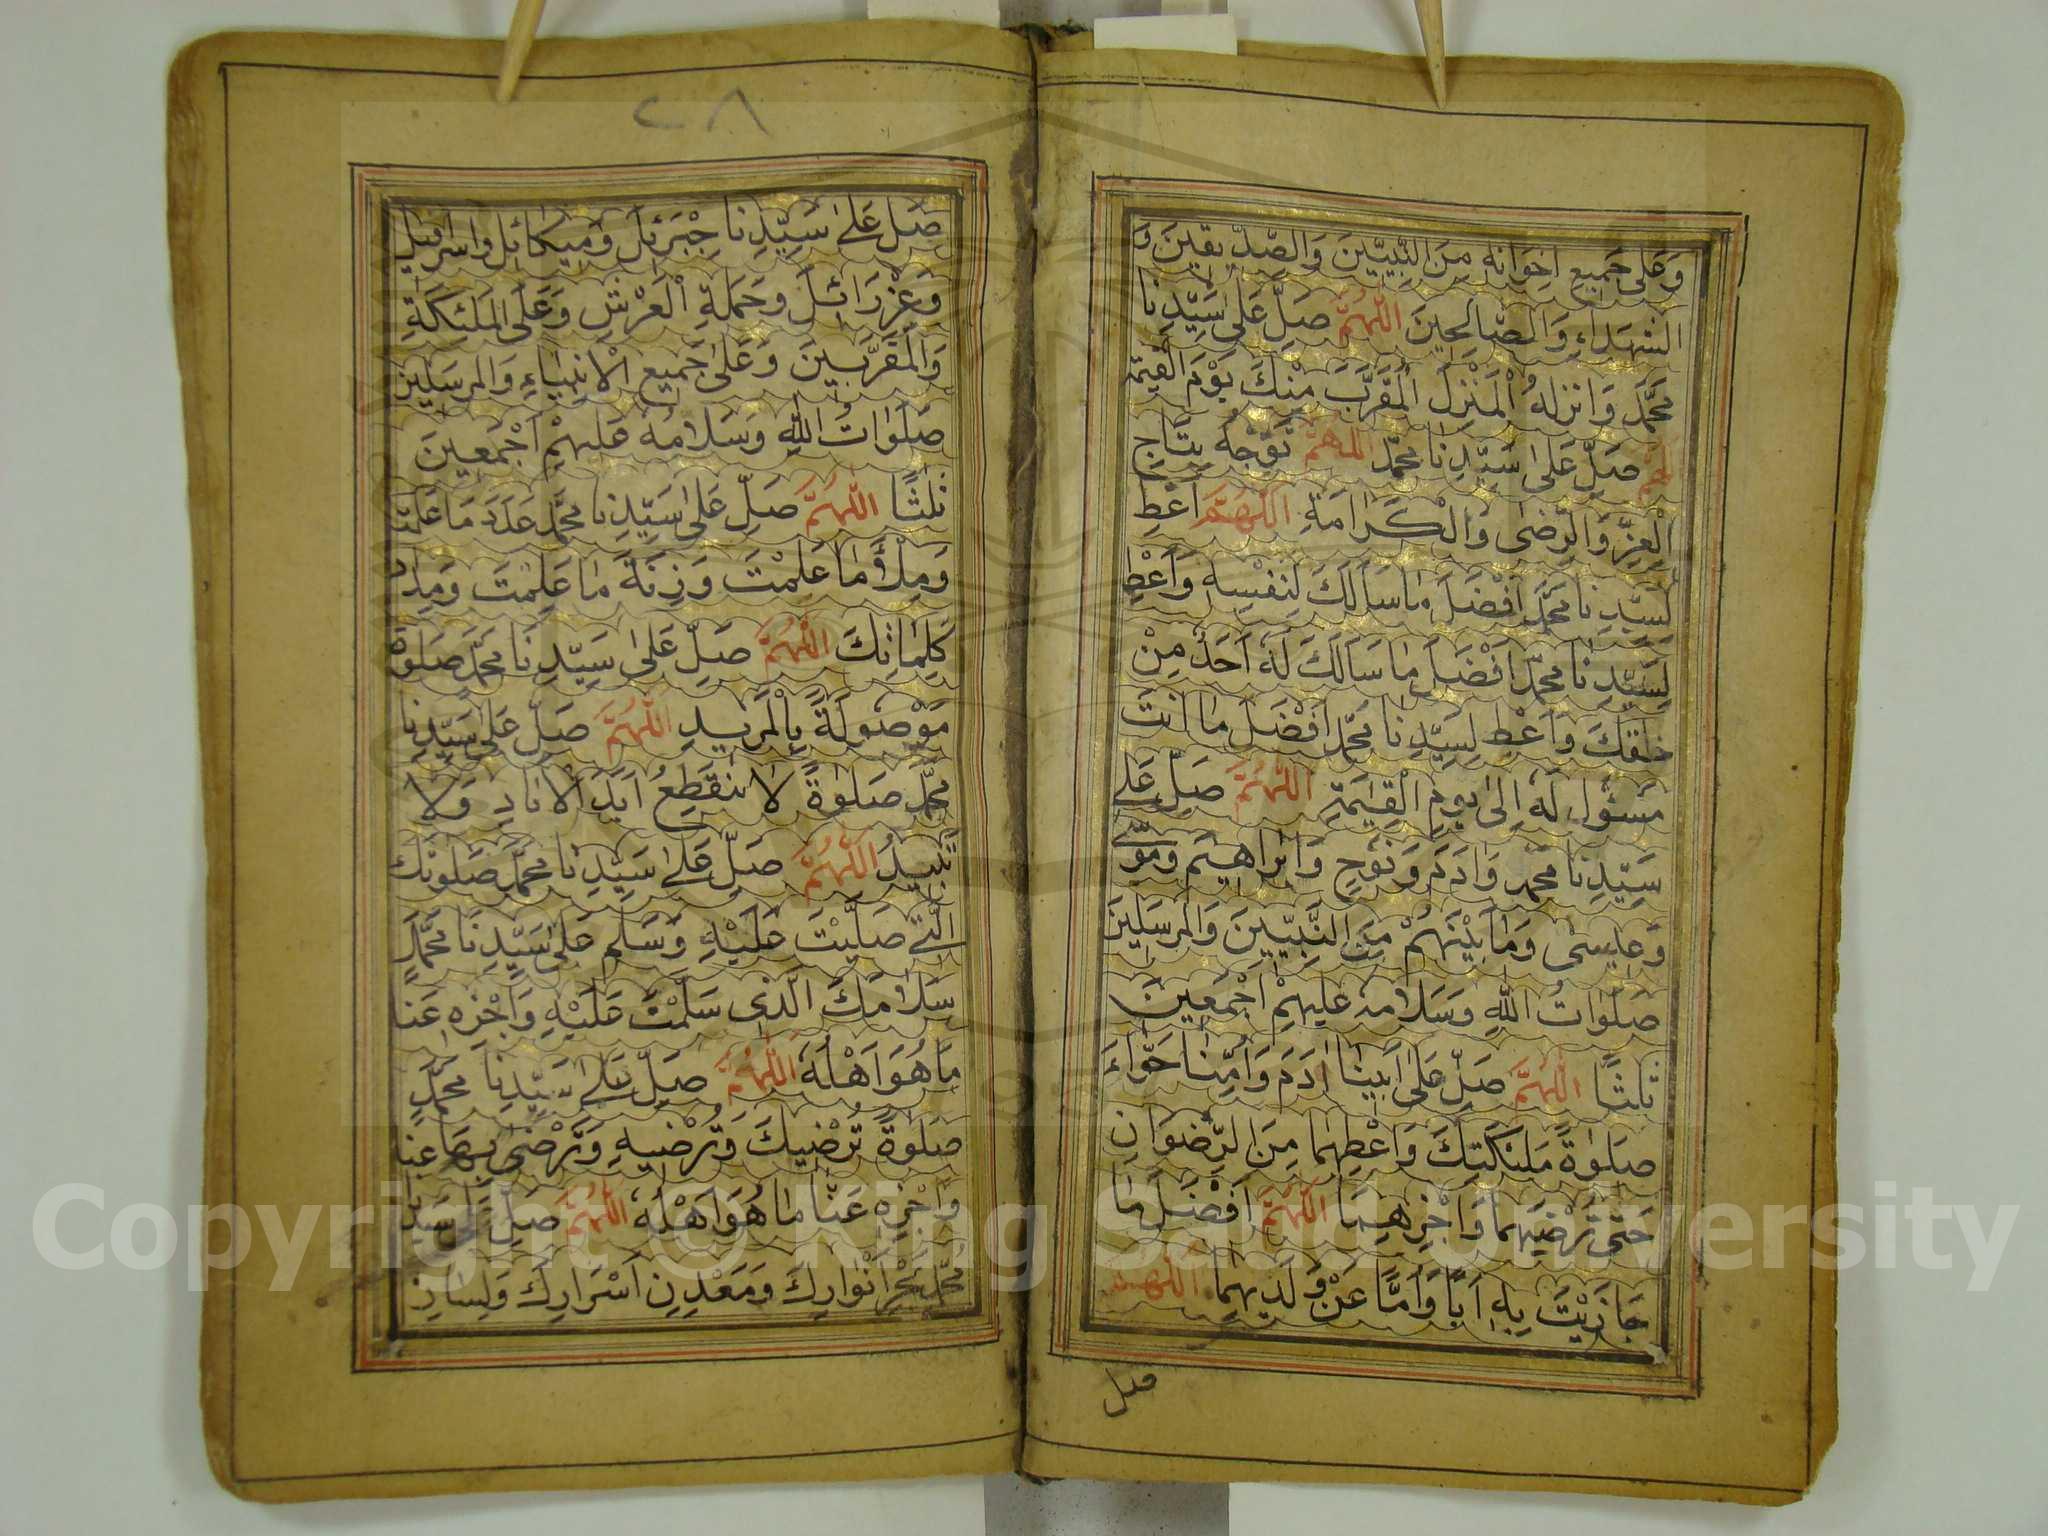 وَعَلٰى جَمِيعِ اِخْوَانِهِ مِنَ النَّبِيّينَ وَالصِّدّيقينَ وَ
الشُّهَدَاءِ وَالصَّالِحينَ اَللّٰهُمَّ صَلِّ عَلٰى سَيِّدِنَا
مُحَمَّدٍ وَانْزِلْهُ الْمَنْزِلَ الْمُقَرَّبَ مِنْكَ يَوْمَ الْقِيٰمَةِ
اَللّٰهُمَّ صَلِّ عَلٰى سَيِّدِنَا مُحَمَّدٍ اَللّٰهُمَّ تَوِّجْهُ بِتَاجِ
الْعِزِّ وَالرِّضٰى وَالْكَرَامَةِ اَللّٰهُمَّ اَعْطِ
لِسَيِّدِنَا مُحَمَّدٍ اَفْضَلَ مَا سَاَلَكَ لِنَفْسِهِ وَاَعْطِ
لِسَيِّدِنَا مُحَمَّدٍ اَفْضَلَ مَا سَاَلَكَ لَهُ اَحَدٌ مِنْ
خَلْقِكَ وَاَعْطِ لِسَيِّدِنَا مُحَمَّدٍ اَفْضَلَ مَا اَنْتَ
مَسْئُولٌ لَهُ اِلٰى يَوْمِ الْقِيٰمَةِ اَللّٰهُمَّ صَلِّ عَلٰى
سَيِّدِنَا مُحَمَّدٍ وَاٰدَمَ وَنُوحٍ وَاِبْرَاهِيمَ وَمُوسٰى
وَعِيسٰى وَمَا بَيْنَهُمْ مِنَ النَّبِيّينَ وَالْمُرْسَلِينَ
صَلَوَاتُ اللّٰهِ وَسَلَامُهُ عَلَيْهِمْ اَجْمَعِينَ
ثَلٰثًا اَللّٰهُمَّ صَلِّ عَلٰى اَبينَا اٰدَمَ وَاُمِّنَا حَوَّاءَ
صَلٰوةَ مَلٰئِكَتِكَ وَاَعْطِهِمَا مِنَ الرِّضْوَانِ
حَتّٰى تُرْضِيَهُمَا وَاجْزِهِمَا اَللّٰهُمَّ اَفْضَلَ مَا
جَازَيْتَ بِهِ اَبًا وَاُمًّا عَنْ وَلَدَيْهِمَا اَللّٰهُمَّ
صل
٢٨
صَلِّ عَلٰى سَيِّدِنَا جِبْرَئِلَ وَمِيكَائِلَ وَاِسْرَافِيلَ
وَعِزْرَائِلَ وَحَمَلَةِ الْعَرْشِ وَعَلَى الْمَلٰئِكَةِ
وَالْمُقَرَّبِينَ وَعَلٰى جَمِيعِ الْاَنْبِيَاءِ وَالْمُرْسَلِينَ
صَلَوَاتُ اللّٰهِ وَسَلَامُهُ عَلَيْهِمْ اَجْمَعِينَ
ثَلٰثًا اَللّٰهُمَّ صَلِّ عَلٰى سَيِّدِنَا مُحَمَّدٍ عَدَدَ مَا عَلِمْتَ
وَمِلْأَ مَا عَلِمْتَ وَزِنَةَ مَا عَلِمْتَ وَمِدَادَ
كَلِمَاتِكَ اَللّٰهُمَّ صَلِّ عَلٰى سَيِّدِنَا مُحَمَّدٍ صَلٰوةً
مَوْصُولَةً بِالْمَزِيدِ اَللّٰهُمَّ صَلِّ عَلٰى سَيِّدِنَا
مُحَمَّدٍ صَلٰوةً لَا تَنْقَطِعُ اَبَدَ الْاٰبَادِ وَلَا
تَبِيدُ اَللّٰهُمَّ صَلِّ عَلٰى سَيِّدِنَا مُحَمَّدٍ صَلٰوتَكَ
الَّتِي صَلَّيْتَ عَلَيْهِ وَسَلِّمْ عَلٰى سَيِّدِنَا مُحَمَّدٍ
سَلَامَكَ الَّذِي سَلَّمْتَ عَلَيْهِ وَاجْزِهِ عَنَّا
مَا هُوَ اَهْلُهُ اَللّٰهُمَّ صَلِّ عَلٰى سَيِّدِنَا مُحَمَّدٍ
صَلٰوةً تُرْضِيكَ وَتُرْضِيهِ وَتَرْضٰى بِهَا عَنَّا
وَاجْزِهِ عَنَّا مَا هُوَ اَهْلُهُ اَللّٰهُمَّ صَلِّ عَلٰى سَيِّدِنَا
مُحَمَّدٍ بَحْرِ اَنْوَارِكَ وَمَعْدِنِ اَسْرَارِكَ وَلِسَانِ
Copyright © King Saud University